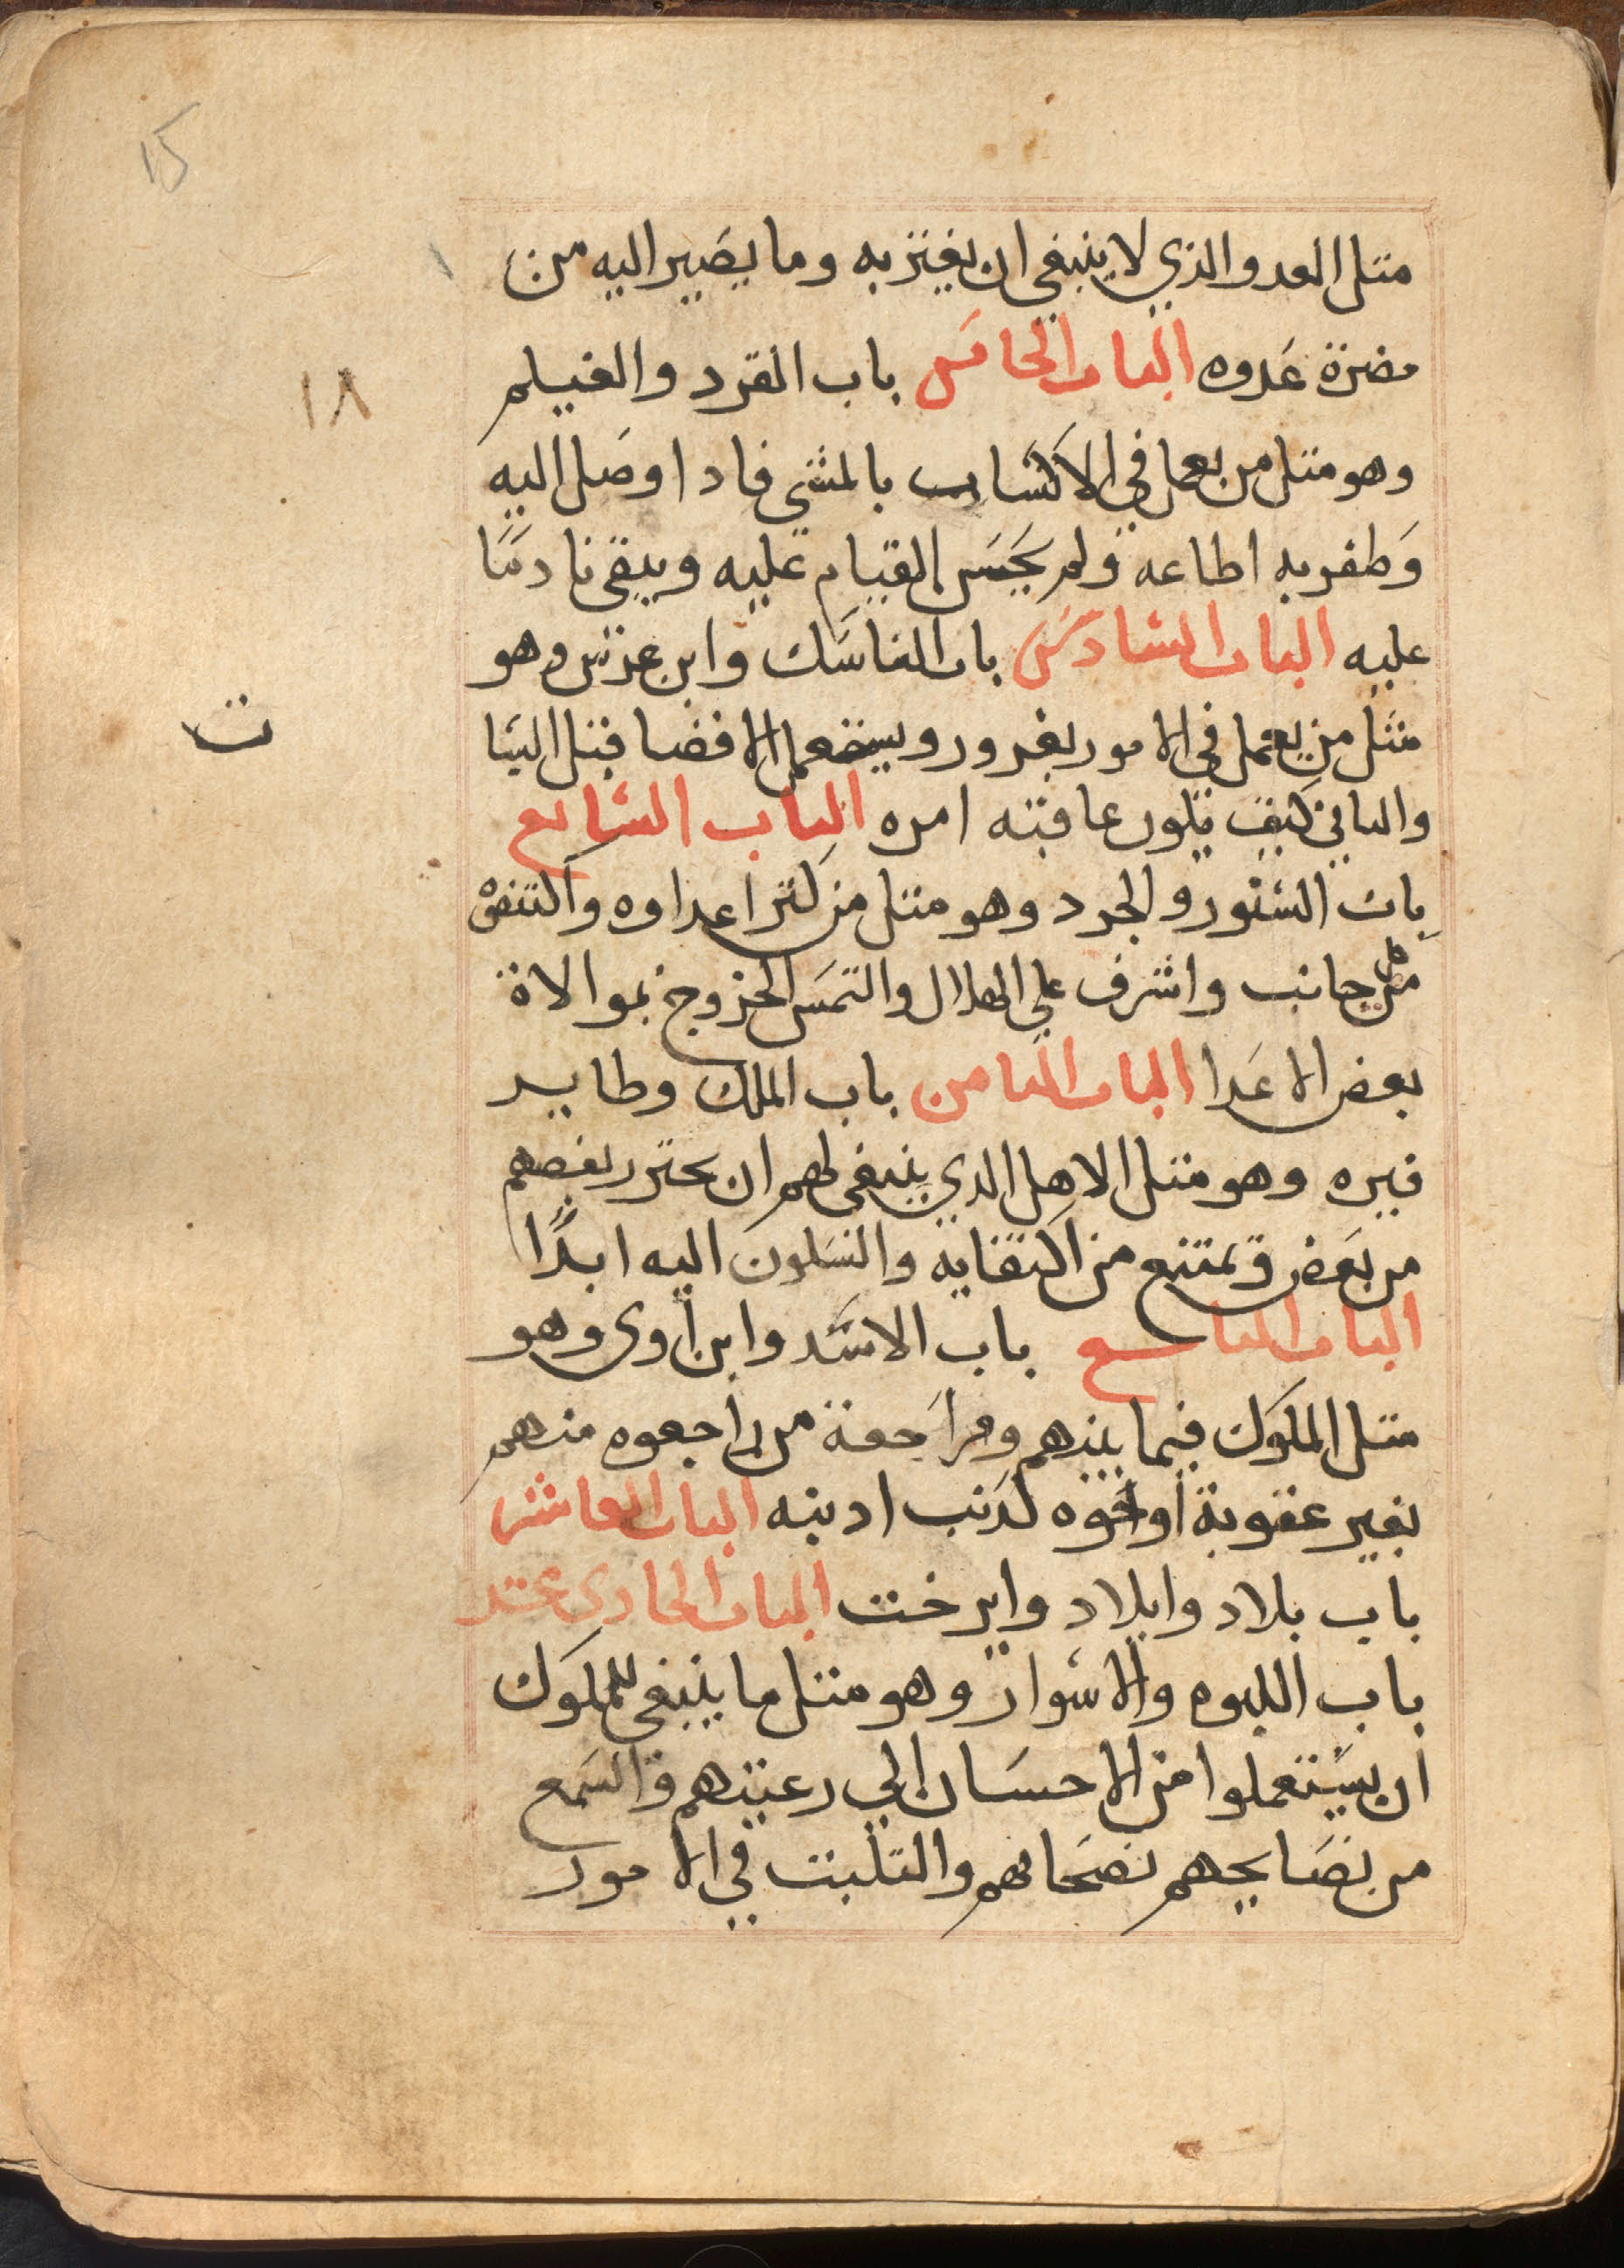 15
متل العدو الذي لا ينبغي ان يغتر به وما يصير اليه من
مضرة عدوه الباب الخامس باب القرد والغيلم
١٨
وهو متل من يعمل في الاكتساب بالمشي فادا وصل اليه
وطفر به اطاعه ولم يحسن القيام عليه ويبقى نادمًا
عليه الباب السادس باب الناسك وابن عرس وهو
ت
متل من يعمل في الامور بغرور ويستعمل الافضا قبل التبا
والتاني كيف تكون عاقبته امره الباب السابع
باب السنور والجرد وهو متل من كتر اعداوه واكتنفوه
من كل جانب واشرف علي الهلاك والتمس الخروج بموالاة
بعض الاعدا الباب التامن باب الملك وطاير
فيره وهو متل الاهل الدي ينبغي لهم ان يحترر بعضهم
من بعض ويمتنع من التقايه والسكون اليه ابدًا
الباب التاسع باب الاسد وابن اوى وهو
متل الملوك فيما بينهم ومراجعة من راجعوه منهم
بغير عقوبة او نحوه لدنب ادنبه الباب العاشر
باب بلاد وايلاد وايرخت الباب الحادى عشر
باب اللبوه والاسوار وهو متل ما ينبغي للملوك
ان يستعملوا من الاحسان الي رعيتهم والسمع
من نصايحهم نصحاهم والتلبت في الامور